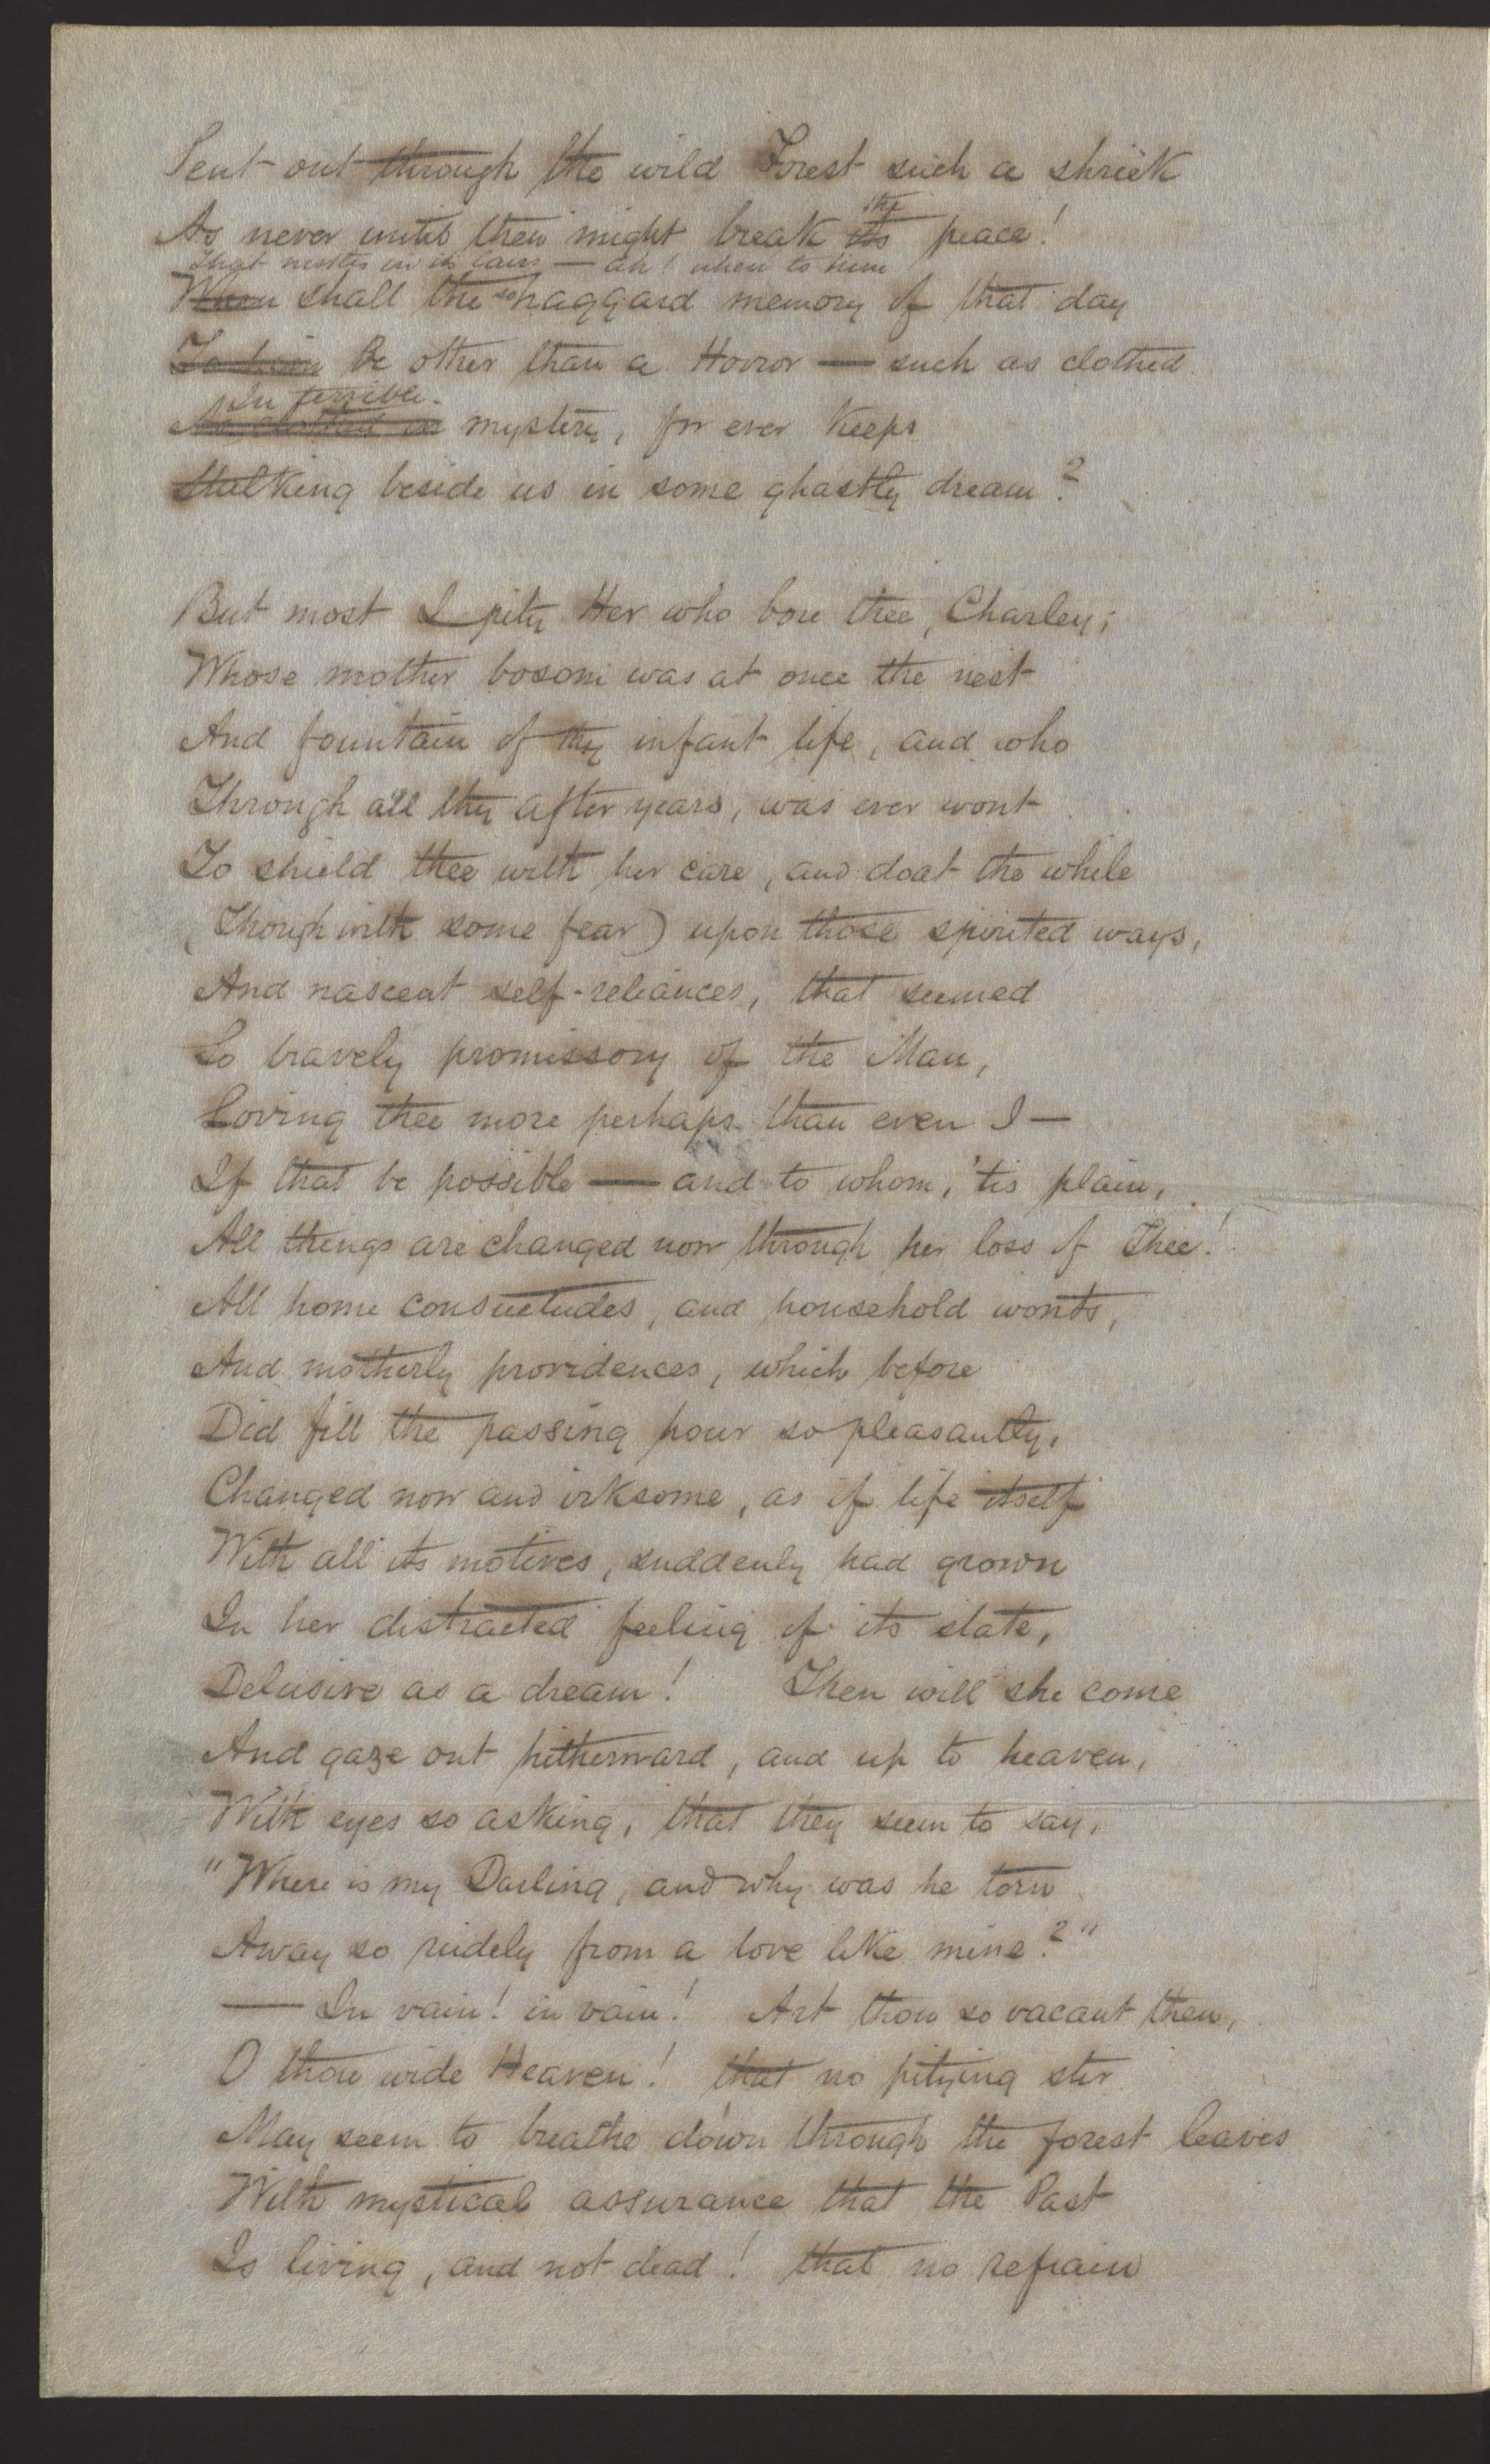 Sent out through the wild Forest such a shriek
the
As never until then might break its peace!
That nestles in its lairs — ah! when to him
When shall the so haggard memory of that day
To him Be other than a Horror — such as clothed
In terrible
mystery, for ever keeps
Stalking beside us in some ghastly dream?
But most I pity Her who bore thee, Charley;
Whose mother bosom was at once the nest
And fountain of thy infant life, and who
Through all thy after years, was ever wont
To shield thee with her care, and doat the while
(Though with some fear) upon those spirited ways,
And nascent self-reliances, that seemed
So bravely promissory of the Man,
Loving thee more perhaps than even I —
If that be possible — and to whom, 'tis plain,
All things are changed now through her loss of Thee!
All home consuetudes, and household wonts,
And motherly providences, which before
Did fill the passing hour so pleasantly,
Changed now and irksome, as if life itself
With all its motives, suddenly had grown
In her distracted feeling of its state,
Delusive as a dream! Then will she come
And gaze out hitherward, and up to heaven,
With eyes so asking, that they seem to say,
"Where is my Darling, and why was he torn
Away so rudely from a love like mine?"
— In vain! in vain! Art thou so vacant then,
O thou wide Heaven! that no pitying stir
May seem to breathe down through the forest leaves
With mystical assurance that the Past
Is living, and not dead! that no refrain